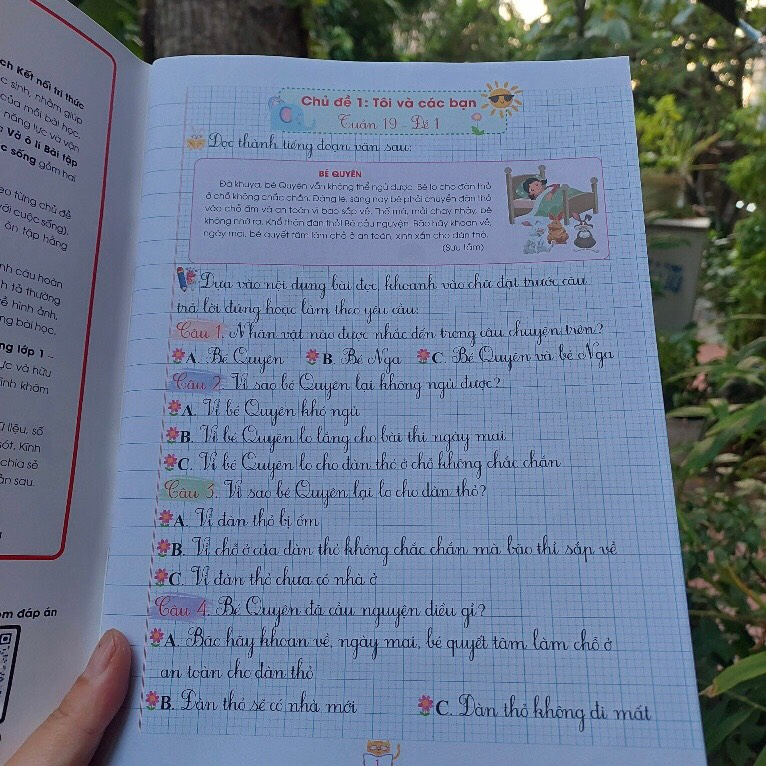 ch Kết nối tri thức
c sinh, nhằm giúp
của mỗi bài học.
năng lực và vận
Vở ô li Bài tập
c sống gồm hai
eo từng chủ đề
với cuộc sống),
ôn tập hằng
nh câu hoàn
h tả thường
ề hình ảnh,
ng bài học.
ng lớp 1 –
ực và hữu
ính khám
ữ liệu, số
sót. Kính
chia sẻ
ần sau.
m đáp án
Chủ đề 1: Tôi và các bạn
Tuần 19 - Đề 1
Đọc thành tiếng đoạn văn sau:
BÉ QUYÊN
Đã khuya, bé Quyên vẫn không thể ngủ được. Bé lo cho đàn thỏ
ở chỗ không chắc chắn. Đáng lẽ, sáng nay bé phải chuyển đàn thỏ
vào chỗ ấm và an toàn vì bão sắp về. Thế mà, mải chạy nhảy, bé
không nhớ ra. Khổ thân đàn thỏ! Bé cầu nguyện: Bão hãy khoan về,
ngày mai, bé quyết tâm làm chỗ ở an toàn, xinh xắn cho đàn thỏ.
(Sưu tầm)
Dựa vào nội dung bài đọc, khoanh vào chữ đặt trước câu
trả lời đúng hoặc làm theo yêu cầu:
Câu 1. Nhân vật nào được nhắc đến trong câu chuyện trên?
A. Bé Quyên B. Bé Nga C. Bé Quyên và bé Nga
Câu 2. Vì sao bé Quyên lại không ngủ được?
A. Vì bé Quyên khó ngủ
B. Vì bé Quyên lo lắng cho bài thi ngày mai
C. Vì bé Quyên lo cho đàn thỏ ở chỗ không chắc chắn
Câu 3. Vì sao bé Quyên lại lo cho đàn thỏ?
A. Vì đàn thỏ bị ốm
B. Vì chỗ ở của đàn thỏ không chắc chắn mà bão thì sắp về
C. Vì đàn thỏ chưa có nhà ở
Câu 4. Bé Quyên đã cầu nguyện điều gì?
A. Bão hãy khoan về, ngày mai, bé quyết tâm làm chỗ ở
an toàn cho đàn thỏ
B. Đàn thỏ sẽ có nhà mới C. Đàn thỏ không đi mất
1